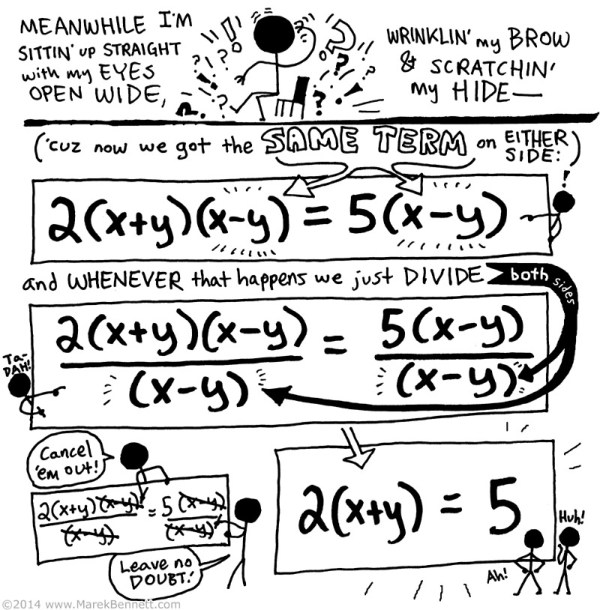 MEANWHILE I'M
SITTIN' UP STRAIGHT
with my EYES
OPEN WIDE,
WRINKLIN' my BROW
& SCRATCHIN'
my HIDE—
('cuz now we got the SAME TERM on EITHER
SIDE:)
2(x+y)(x-y) = 5(x-y)
and WHENEVER that happens we just DIVIDE both sides
2(x+y)(x-y) = 5(x-y)
(x-y) (x-y)
TA-
DAH!
Cancel
'em out!
2(x+y)(x-y) = 5(x-y)
(x-y) (x-y)
Leave no
DOUBT!
2(x+y) = 5
Ah!
Huh!
©2014 www.MarekBennett.com